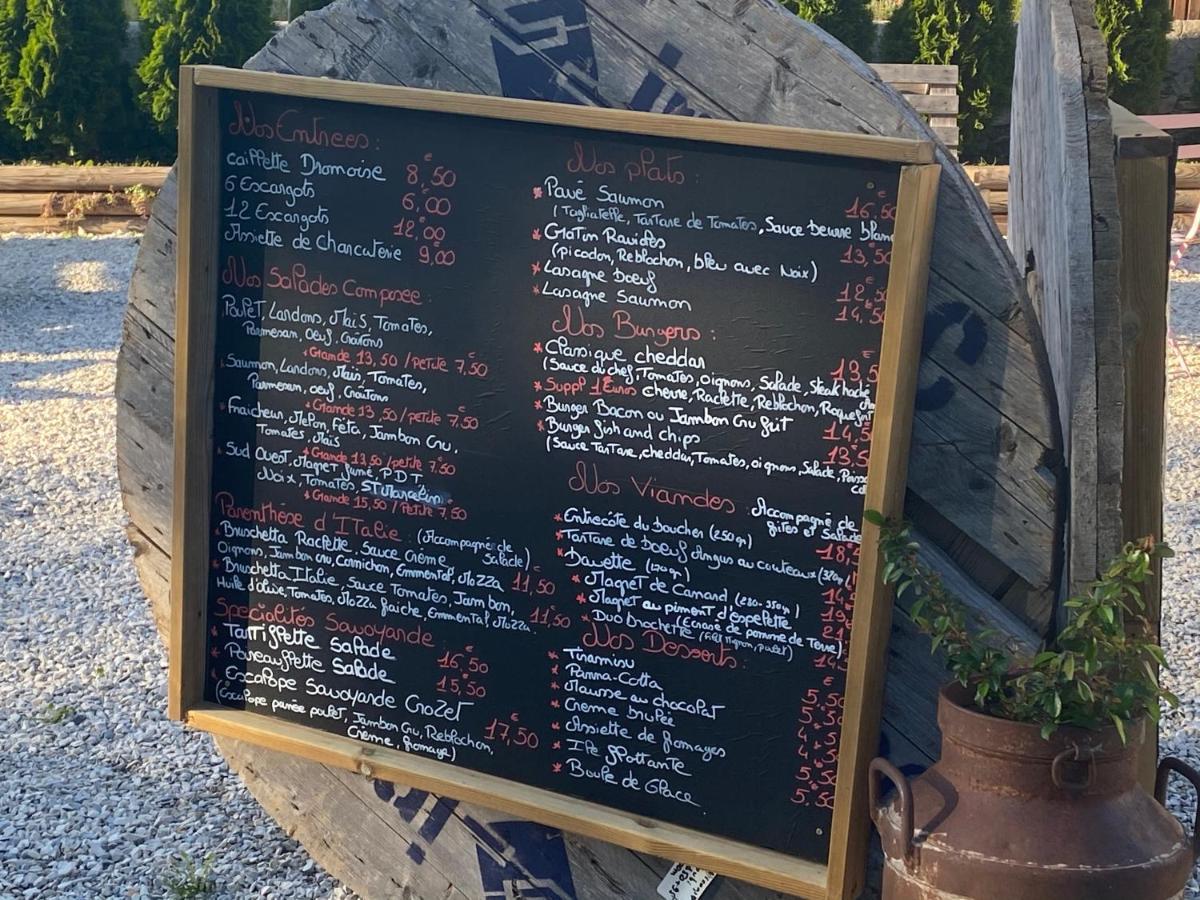 Nos Entrees :
caillette Dromoise 8,50€
6 Escargots 6,00
12 Escargots 12,00
Assiette de Charcuterie 9,00
Nos Salades Composee :
Poulet, Lardons, Maïs, Tomates,
Parmesan, Oeuf, Croûtons
* Grande 13,50 / petite 7,50
Saumon, Lardons, Maïs, Tomates,
Parmesan, oeuf, Croutons
* Grande 13,50 / petite 7,50
* Fraicheur, Melon, Féta, Jambon Cru,
Tomates, Maïs
* Grande 13,50 / petite 7,50
* Sud Ouest, Magret fumé, P.D.T,
Noix, Tomates, ST Marcelin
* Grande 15,50 / Petite 7,50
Parenthèse d'Italie : (Accompagnée de Salade)
* Bruschetta Raclette, Sauce Crème
Oignons, Jambon cru, Cornichon, Emmental, Mozza 11,50€
* Bruschetta Italie, Sauce Tomates, Jambon,
Huile d'olive, Tomates, Mozza fraiche, Emmental, Mozza. 11,50
Specialités Savoyarde
* Tartiflette Salade 16,50€
* Poireauflette Salade 15,50
* Escalope Savoyarde Crozet
(Escalope panée poulet, Jambon Cru, Reblochon, 17,50€
Crème, fromage)
Nos plats :
* Pavé Saumon 16,50
(Tagliatelle, Tartare de Tomates, Sauce beurre blanc
* Gratin Ravioles 13,50
(picodon, Reblochon, bleu avec Noix)
* Lasagne boeuf 12,50
* Lasagne Saumon 14,50
Nos Burgers :
* Classique cheddar 13,5
(Sauce du chef, Tomates, oignons, Salade, steak haché
* Suppl 1 Euros chèvre, Raclette, Reblochon, Roquefort
* Burger Bacon ou Jambon Cru frit 14,5
* Burger fish and chips 13,5
(Sauce Tartare, cheddar, Tomates, oignons, Salade, Poisso
Nos Viandes : Accompagné de
frites et Salade
* Entrecôte du boucher (250gr) 18,
* Tartare de boeuf Angus au couteaux
* Bavette
* Magret de Canard (280-350gr)
* Magret au piment d'espelette
(Ecrasé de pomme de Terre)
* Duo brochette (filet mignon, poulet)
Nos Desserts :
* Tiramisu 5,50
* Panna-Cotta
* Mousse au chocolat
* Crème brulée
* Assiette de fromages
* Ile flottante 5,50
* Boule de Glace